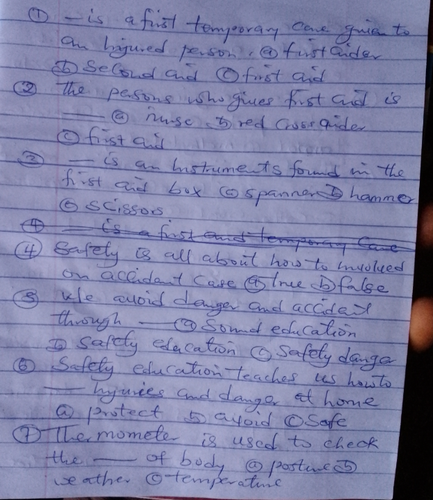 ① — is a first temporary care given to
an injured person. ⓐ first aider
ⓑ second aid ⓒ first aid
② the persons who gives first aid is
— ⓐ nurse ⓑ red cross aider
ⓒ first aid
③ — is an instruments found in the
first aid box ⓐ spanner ⓑ hammer
ⓒ scissors
④ — is a first and temporary care
④ Safety is all about how to involved
on accident case ⓐ true b) false
⑤ We avoid danger and accident
through — ⓐ Sound education
ⓑ Safety education ⓒ Safety danger
⑥ Safety education teaches us how to
— injuries and danger at home
ⓐ protect b avoid ⓒ Safe
⑦ Thermometer is used to check
the — of body ⓐ posture ⓑ
weather ⓒ temperature